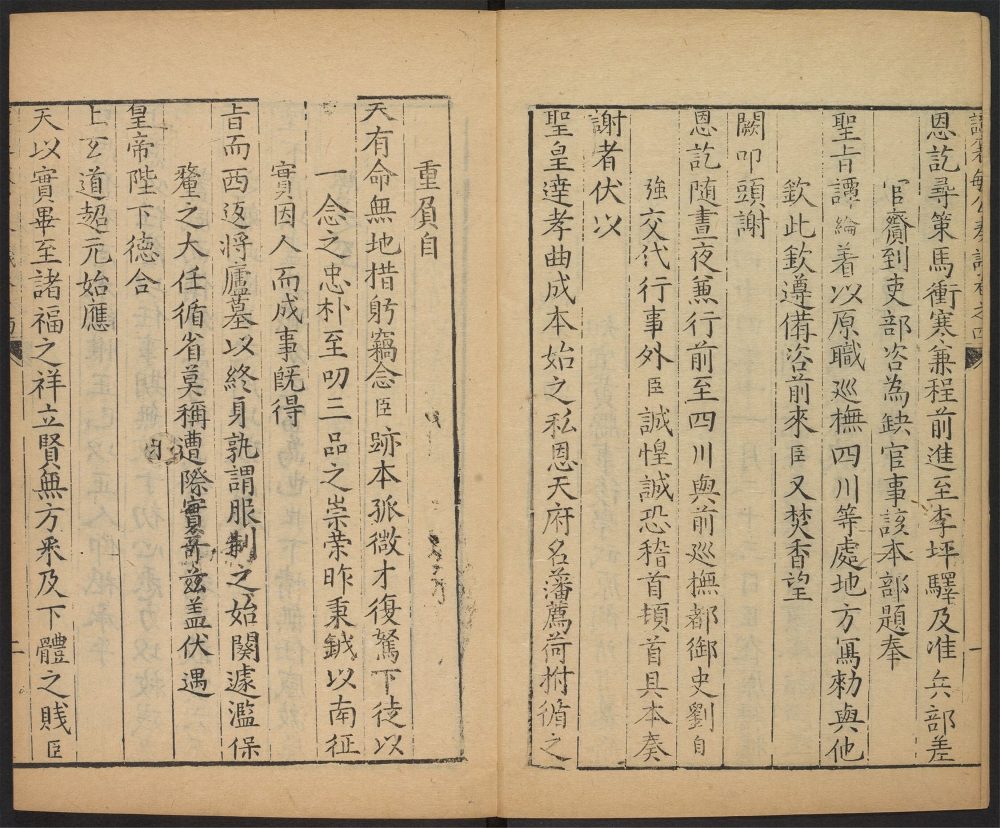 恩訖尋策馬衝寒兼程前進至李坪驛及准兵部差
官齎到吏部咨為缺官事該本部題奉
聖旨譚綸着以原職巡撫四川等處地方寫勑與他
欽此欽遵備咨前來臣又焚香望
闕叩頭謝
恩訖隨晝夜兼行前至四川與前巡撫都御史劉自
強交代行事外臣誠惶誠恐稽首頓首具本奏
謝者伏以
聖皇達孝曲成本始之私恩天府名藩薦荷拊循之
一
重負自
天有命無地措躬竊念臣跡本孤微才復駑下徒以
一念之忠朴至叨三品之崇荣昨秉鉞以南征
實因人而成事既得
旨而西返將廬墓以終身孰謂服制之始闋遽濫保
釐之大任循省莫稱遭際實奇兹盖伏遇
皇帝陛下德合
上玄道超元始應
天以實畢至諸福之祥立賢無方釆及下體之賤臣
二